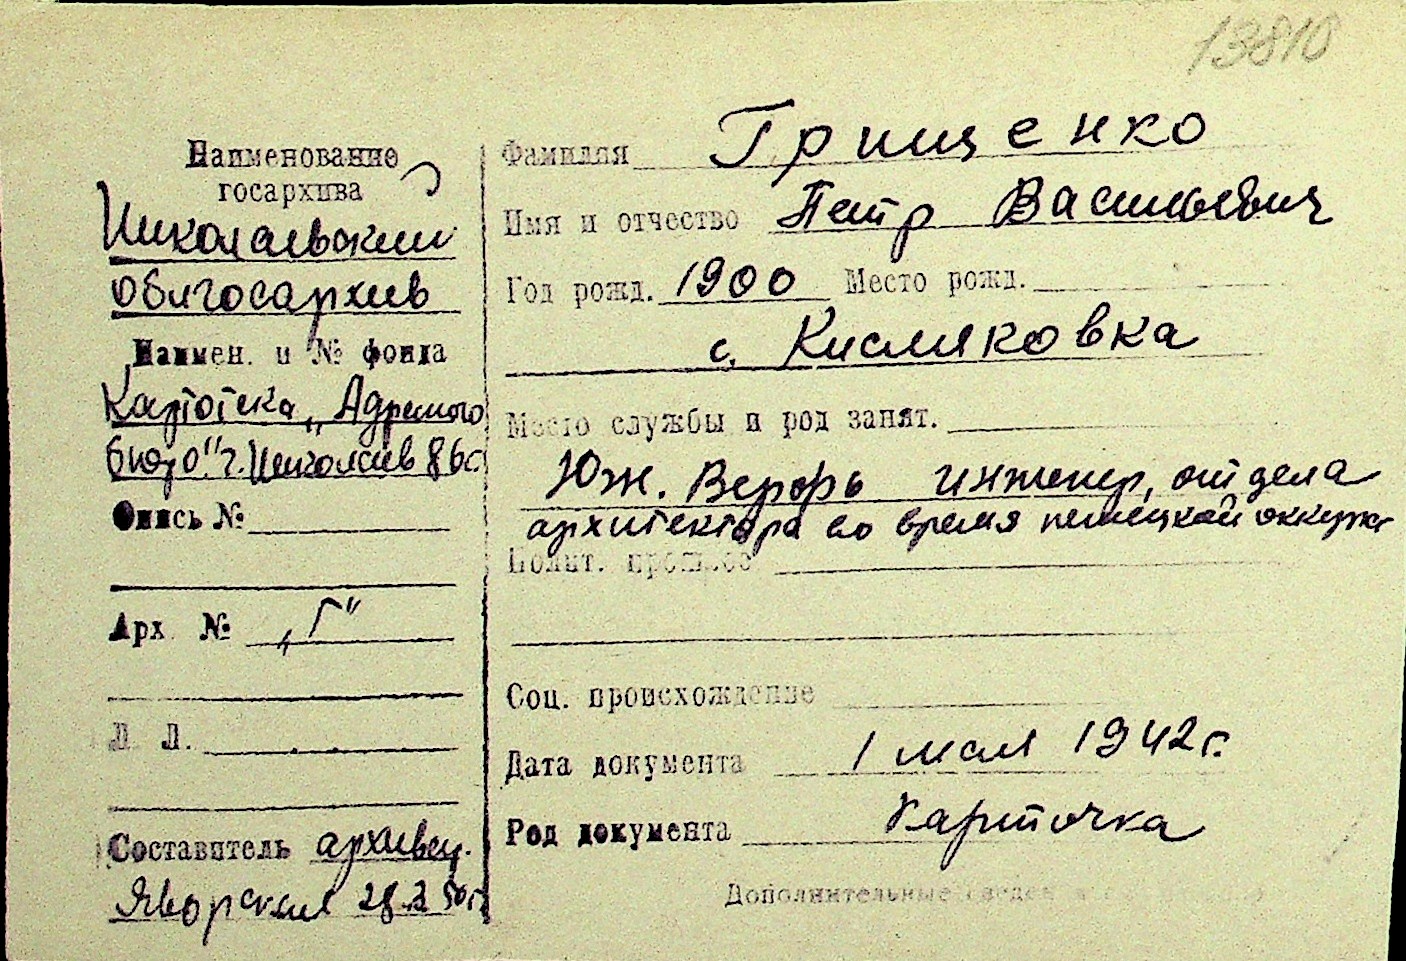 13810
Наименование
госархива
Николаевский
облгосархив
Наимен. и № фонда
Картотека „Адресного
бюро" г. Николаев
Опись №
Арх №
„Г"
Л Л.
Составитель архивец.
Яворская
Фамилия Грищенко
Имя и отчество Петр Васильевич
Год рожд. 1900 Место рожд.
с. Кисляковка
Место службы и род занят.
Юж. Верфь инженер, отдела
архитектора во время немецкой оккупац
Полит. прошлое
Соц. происхождение
Дата документа 1 мая 1942г.
Род документа карточка
Дополнительные сведен